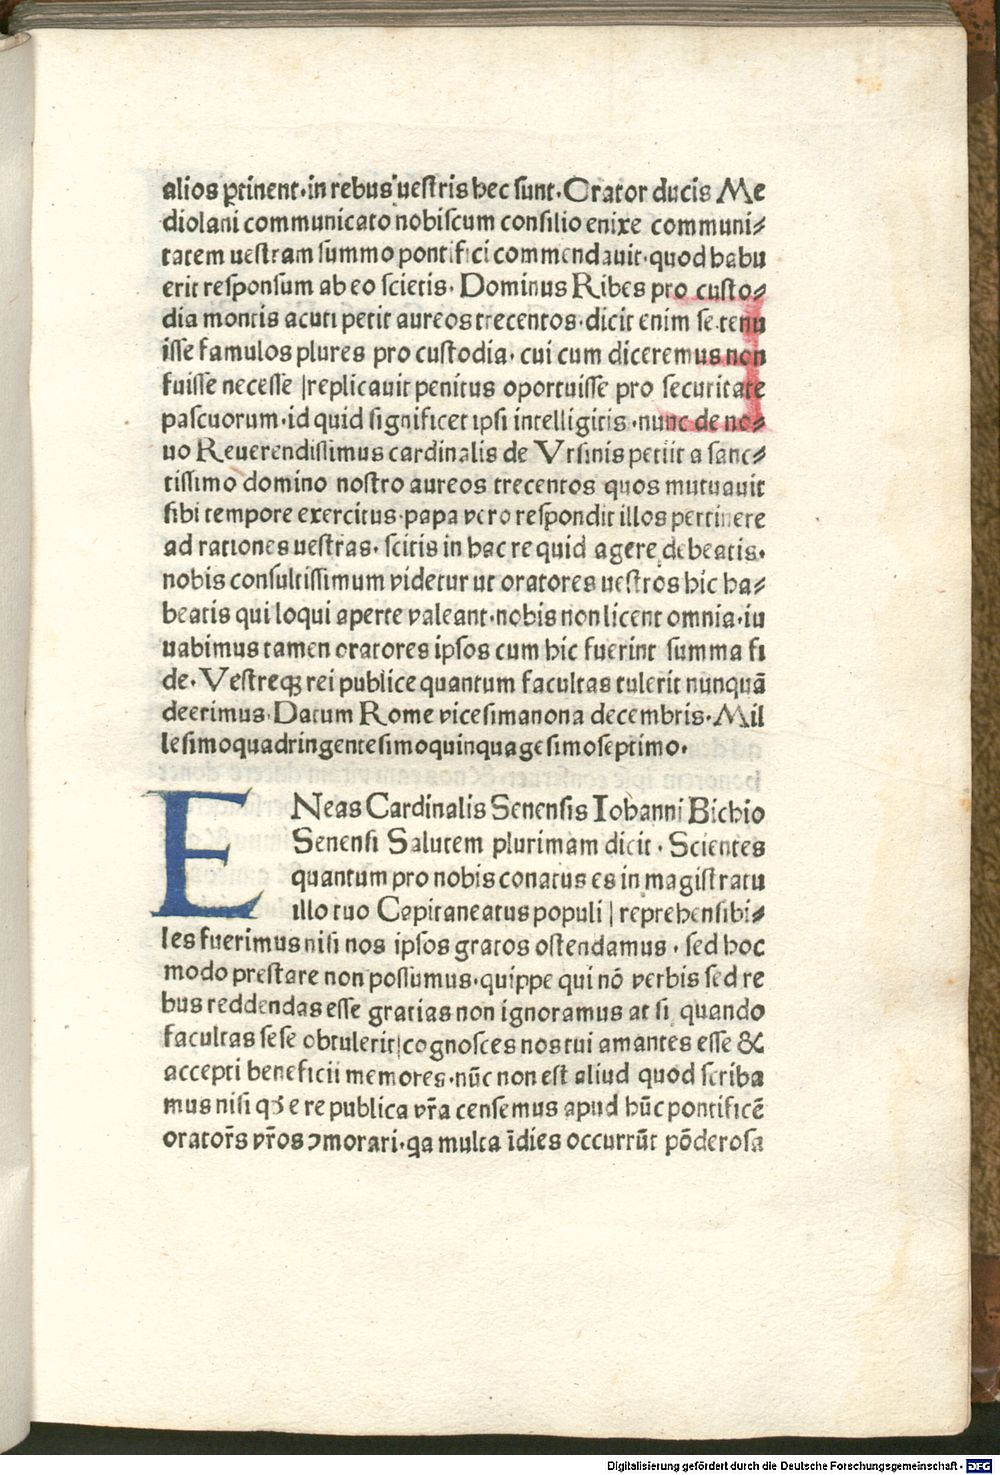 alios ꝑtinent·in rebus uestris hec sunt·Orator ducis Me
diolani communicato nobiscum consilio enixe communi⸗
tatem uestram summo pontifici commendauit·quod habu
erit responsum ab eo scietis· Dominus Ribes pro custo⸗
dia montis acuti petit aureos trecentos·dicit enim se tenu
isse famulos plures pro custodia· cui cum diceremus non
fuisse necesse |replicauit penitus oportuisse pro securitate
pascuorum·id quid significet ipsi intelligitis ·nunc de no⸗
uo Reuerendissimus cardinalis de Vrsinis petiit a sanc⸗
tissimo domino nostro aureos trecentos quos mutuauit
sibi tempore exercitus·papa vero respondit illos pertinere
ad rationes uestras· scitis in hac re quid agere debeatis·
nobis consultissimum videtur ut oratores uestros hic ha⸗
beatis qui loqui aperte valeant·nobis non licent omnia·iu
uabimus tamen oratores ipsos cum hic fuerint summa fi
de· Vestreqꝫ rei publice quantum facultas tulerit nunquā
deerimus·Datum Rome vicesimanona decembris·Mil
lesimoquadringentesimoquinquagesimoseptimo·
ENeas Cardinalis Senensis Iohanni Bichio
Senensi Salutem plurimam dicit · Scientes
quantum pro nobis conatus es in magistratu
illo tuo Capitaneatus populi | reprehensibi⸗
les fuerimus nisi nos ipsos gratos ostendamus · sed hoc
modo prestare non possumus·quippe qui nō verbis sed re
bus reddendas esse gratias non ignoramus at si quando
facultas sese obtulerit|cognosces nos tui amantes esse &
accepti beneficii memores·nūc non est aliud quod scriba
mus nisi qꝫ e re publica vr̄a censemus apud hūc pontificē
orator̄s vr̄os ꝯmorari·qa multa īdies occurrūt pōderosa
Digitalisierung gefördert durch die Deutsche Forschungsgemeinschaft - DFG